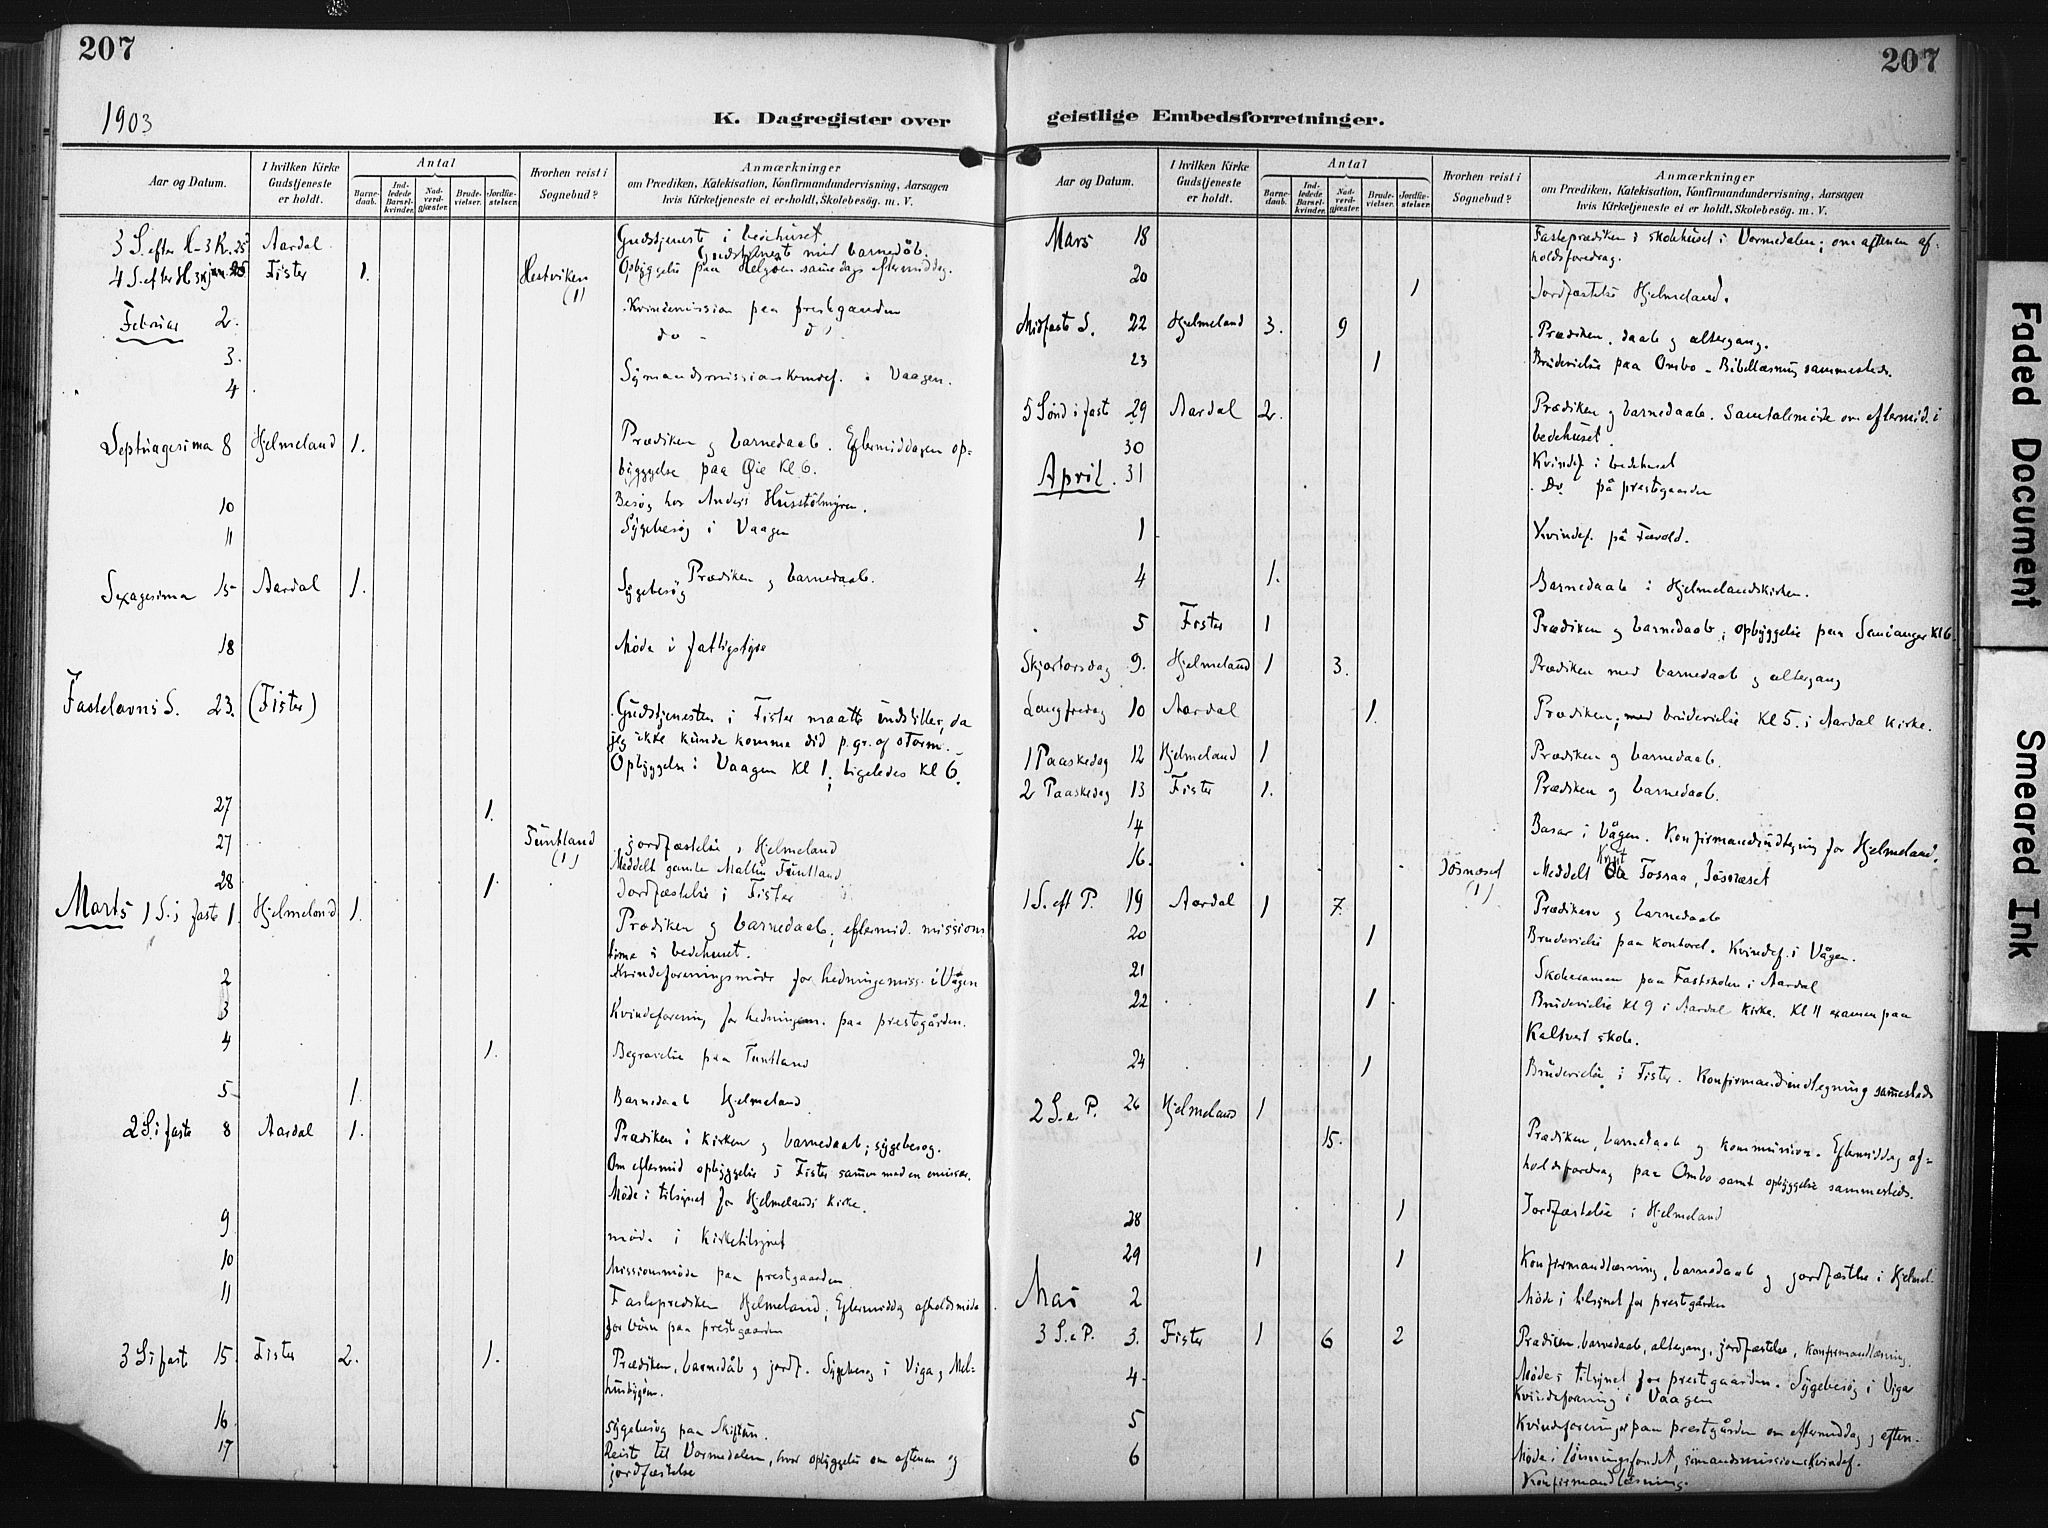 207
1903
K. Dagregister over
Aar og Datum.
I hvilken Kirke Gudstjeneste er holdt.
Antal
Barne-daab.
Ind-ledede Barsel-kvinder.
Nad-verd-gjæster.
Brude-vielser.
Jordfæ-stelser.
Hvorhen reist i Sognebud?
Anmærkninger
om Prædiken, Katekisation, Konfirmandundervisning, Aarsagen
hvis Kirketjeneste ei er holdt, Skolebesøg. m. V.
3 S. efter H-3 K. 25 Aardal Gudstjenest i bedehuset
Gudstjenest med barnedåb.
4 S. efter H Fister 1. Hestviken (1) Opbyggelse paa Helgøen samme dags eftermiddag.
Februar 2. Kvindemission paa prestgaarden
3. do - do
4 Sømandsmissionskvindef. i Vaagen.
Septuagesima 8 Hjelmeland 1. Prædiken og barnedaab. Eftermiddagen op-
byggelse paa Øie Kl 6.
10 Besøg hos Anders Husstølmyren.
11 Sygebesøg i Vaagen
Sexagesima 15 Aardal 1. Sygebesøg Prædiken og barnedaab.
18 Møde i fattigstyre
Fastelavns S. 23. (Fister) Gudstjenesten i Fister maatte indstilles, da
jeg ikke kunde komme did p. gr. af storm.
Opbyggelse i Vaagen Kl 1; ligeledes Kl 6.
27 1.
27 Tuntland (1) jordfæstelse i Hjelmeland
Meddelt gamle Tuntland
28 1. Jordfæstelse i Fister
Marts 1 S. i faste 1. Hjelmeland 1. Prædiken og barnedaab; eftermid. missions
time i bedehuset.
2 Kvindeforeningsmøde for hedningemiss. i Vågen
3 Kvindeforening for hedningem. paa prestegården.
4 1. Begravelse paa Tuntland
5 1. Barnedaab Hjelmeland
2 S. i faste 8 Aardal 1. Prædiken i kirken og barnedaab; sygebesøg.
Om eftermid opbyggelse i Fister sammen med en emissær.
Møde i tilsynet for Hjelmelands kirke.
9 møde i kirketilsynet
10 Missionsmøde paa prestgaarden
11 Fasteprediken Hjelmeland; Eftermiddag afholdsmøde
for børn paa prestgaarden
3 S i fast 15. Fister 2. 1. Prædiken, barnedåb og jordf. Sygebesøg i Viga, Mel-
husbygden.
16. Sygebesøg paa Skiftun.
17 Reist til Vormedalen, hvor opbyggelse om aftenen og
jordfæstelse
207
geistlige Embedsforretninger.
Aar og Datum.
I hvilken Kirke Gudstjeneste er holdt.
Antal
Barne-daab.
Ind-ledede Barsel-kvinder.
Nad-verd-gjæster.
Brude-vielser.
Jordfæ-stelser.
Hvorhen reist i Sognebud?
Anmærkninger
om Prædiken, Katekisation, Konfirmandundervisning, Aarsagen
hvis Kirketjeneste ei er holdt, Skolebesøg. m. V.
Mars 18 Fasteprædiken i skolehuset i Vormedalen; om aftenen af-
holdsforedrag.
20 1 Jordfæstelse Hjelmeland.
Midfaste S. 22 Hjelmeland 3. 9 Prædiken, daab og altergang.
23 1 Brudevielse paa Ombo - Bibellæsning sammesteds.
5 Sønd i fast 29 Aardal 2. Prædiken og barnedaab. Samtalemøde om eftermid. i
bedehuset.
30 Kvindef i bedehuset
April. 31 Do på prestegaarden
1 Kvindef. på Fævold.
4 1. Barnedaab i Hjelmelandskirken.
5 Fister 1 Prædiken og barnedaab; opbyggelse paa Kl 6
Skjærtorsdag 9. Hjelmeland 1 3. Prædiken med barnedaab og altergang
Langfredag 10 Aardal 1. Prædiken; med brudevielse Kl 5. i Aardal kirke.
1 Paaskedag 12 Hjelmeland 1 Prædiken og barnedaab.
2 Paaskedag 13 Fister 1. Prædiken og barnedaab.
14 Basar i Vågen. Konfirmandindtegning for Hjelmeland.
16. Jøsnæset (1) Meddelt Fossaa, Jøsnæset
1 S. eft P. 19 Aardal 1 7. Prædiken og barnedaab
20 1 Brudevielse paa kontoret. Kvindef. i Vågen.
21 Skoleexamen paa Fastskolen i Aardal
22 1 Brudevielse Kl 9 i Aardal kirke. Kl 11 examen paa
Kaltvest skole.
24 1 Brudevielse i Fister. Konfirmandindtegning sammesteds
2 S. e. P. 26 Hjelmeland 1
15. Prædiken, barnedaab og kommunion. Eftermiddag af-
holdsforedrag paa Ombo samt opbyggelse sammesteds.
28 1 Jordfæstelse i Hjelmeland
29 1 1 Konfirmandlæsning, barnedaab og jordfæstelse i Hjelmel.
Mai 2 Møde i tilsynet for prestgården
3 S. e P. 3. Fister 1 6 2 Prædiken, barnedaab, altergang, jordfæstelse, konfirmandlæsning.
4 Møde i tilsynet for prestgaarden. Sygebesøg i Viga
Kvindeforening i Vaagen
5 Kvindeforening paa prestgården om eftermiddag og aften.
6 Møde i lønningsfondet, sømandsmissionskvindef.
Konfirmandlæsning.
Faded Document
Smeared Ink